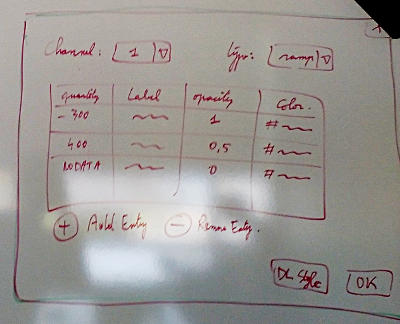 Channel: 1 Type: ramp
quantity Label opacity Color.
-300 1 #
400 0,5 #
NODATA 0 #
+ Add Entry - Remove Entry.
DL Style OK